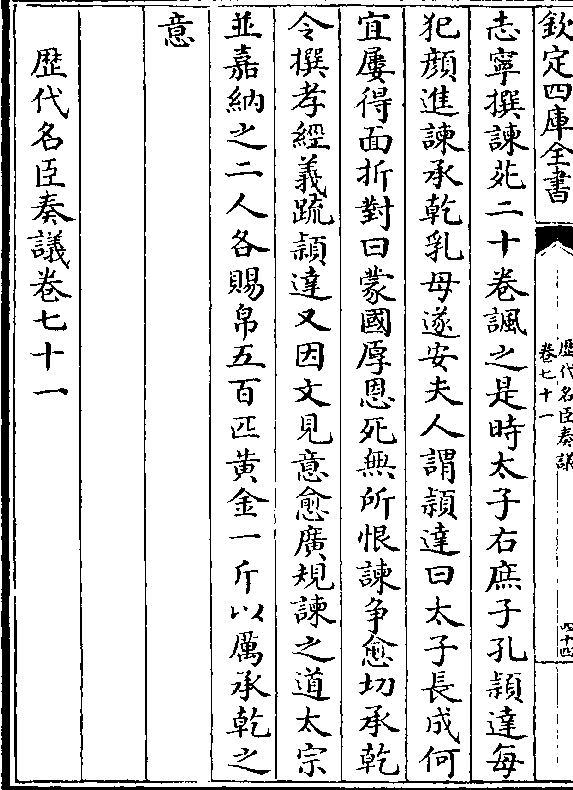 欽定四庫全書
歴代名臣奏議
卷七十一
四十四
志寧撰諫苑二十卷諷之是時太子右庶子孔頴達每
犯顔進諫承乾乳母遂安夫人謂頴達曰太子長成何
宜屢得面折對曰蒙國厚恩死無所恨諫争愈切承乾
令撰孝經義疏頴達又因文見意愈廣規諫之道太宗
並嘉納之二人各賜帛五百匹黄金一斤以厲承乾之
意
歴代名臣奏議卷七十一